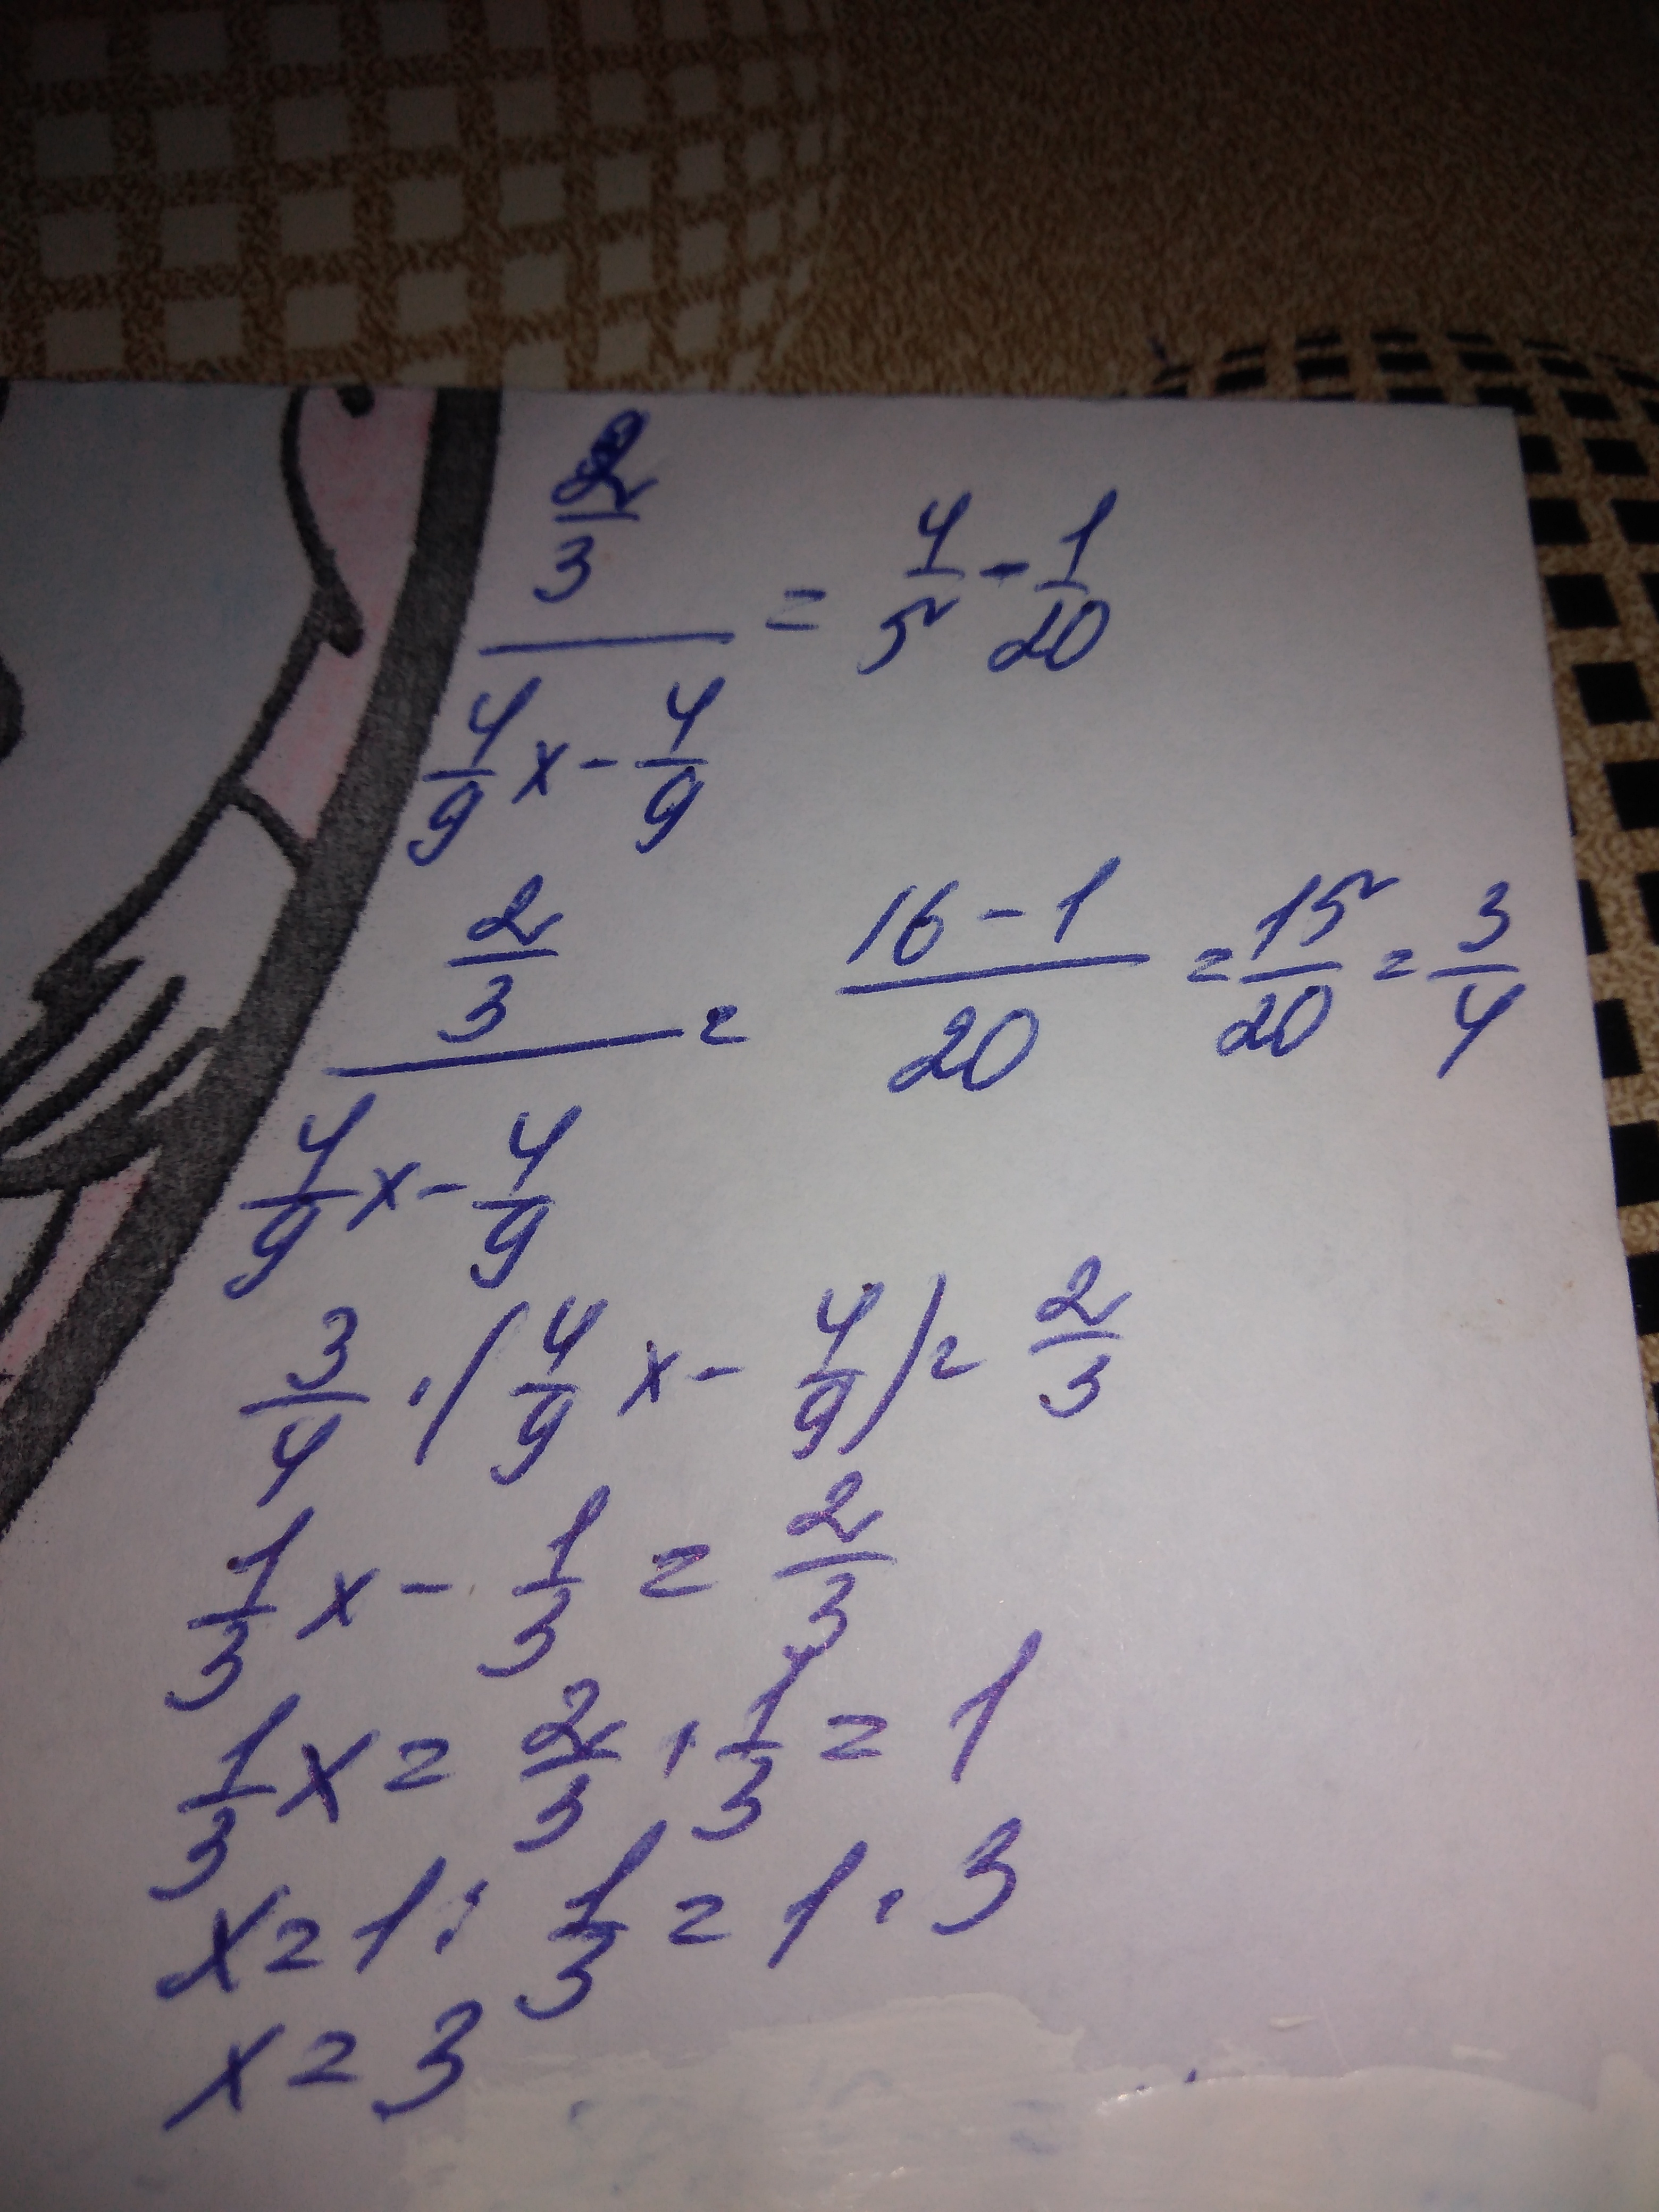 2/3 / (4/9 x - 4/9) = 4/5 - 1/20
2/3 / (4/9 x - 4/9) = (16 - 1)/20 = 15/20 = 3/4
3/4 · (4/9 x - 4/9) = 2/3
1/3 x - 1/3 = 2/3
1/3 x = 2/3 · 1/3 = 1
x = 1 : 1/3 = 1 · 3
x = 3